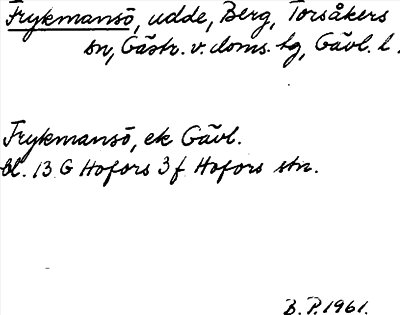 Frykmansö, udde, Berg, Torsåkers
sn, Gästr. v. doms. tg, Gävl. l.
Frykmansö, ek Gävl.
bl. 13 G Hofors 3 f Hofors stn.
B. P. 1961.